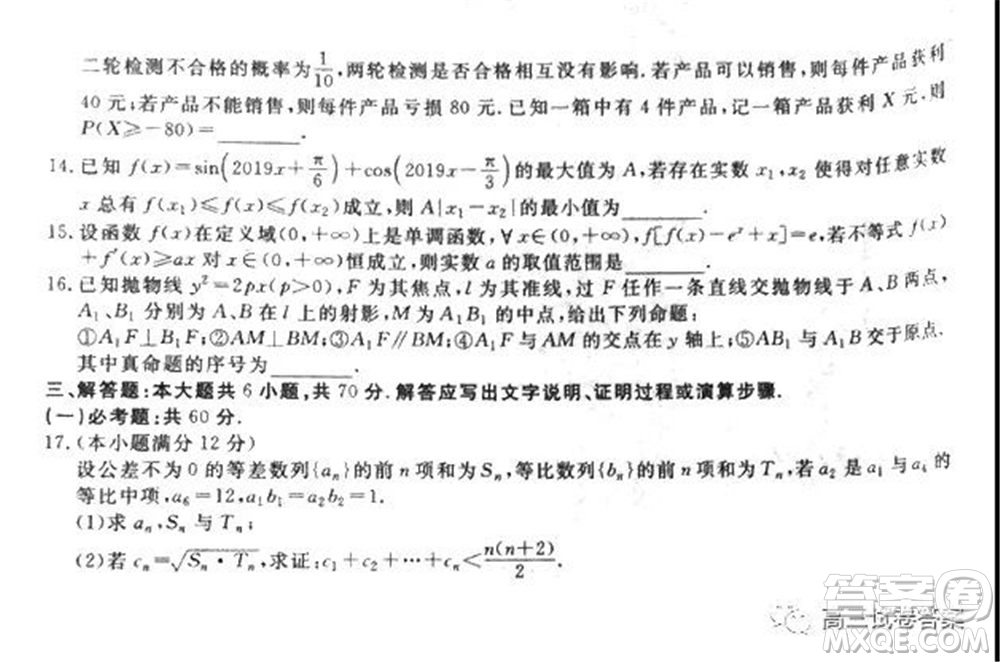 二轮检测不合格的概率为1/10,两轮检测是否合格相互没有影响.若产品可以销售,则每件产品获利
40元;若产品不能销售,则每件产品亏损80元.已知一箱中有4件产品,记一箱产品获利X元.则
P(X≥-80)=________.
14.已知f(x)=sin(2019x+π/6)+cos(2019x-π/3)的最大值为A,若存在实数x₁,x₂使得对任意实数
x总有f(x₁)≤f(x)≤f(x₂)成立,则A|x₁-x₂|的最小值为________.
15.设函数f(x)在定义域(0,+∞)上是单调函数,∀x∈(0,+∞),f[f(x)-eˣ+x]=e,若不等式f(x)
+f′(x)≥ax对x∈(0,+∞)恒成立,则实数a的取值范围是________.
16.已知抛物线y²=2px(p>0),F为其焦点,l为其准线,过F任作一条直线交抛物线于A、B两点,
A₁、B₁分别为A、B在l上的射影,M为A₁B₁的中点,给出下列命题:
①A₁F⊥B₁F;②AM⊥BM;③A₁F∥BM;④A₁F与AM的交点在y轴上;⑤AB₁与A₁B交于原点.
其中真命题的序号为________.
三、解答题:本大题共6小题,共70分.解答应写出文字说明、证明过程或演算步骤.
(一)必考题:共60分.
17.(本小题满分12分)
设公差不为0的等差数列{aₙ}的前n项和为Sₙ,等比数列{bₙ}的前n项和为Tₙ,若a₂是a₁与a₄的
等比中项,a₆=12,a₁b₁=a₂b₂=1.
(1)求aₙ,Sₙ与Tₙ;
(2)若cₙ=√(Sₙ·Tₙ),求证:c₁+c₂+⋯+cₙ<n(n+2)/2.
答案圈
高三试卷答案
MXQE.COM